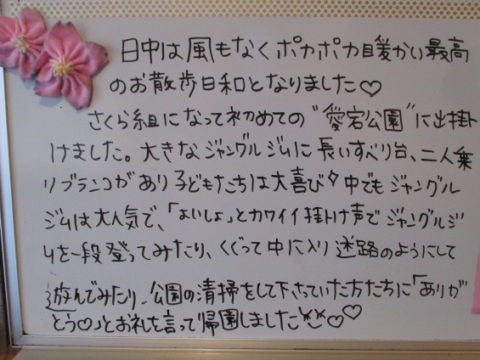 日中は風もなくポカポカ暖かい最高
のお散歩日和となりました♡
さくら組になって初めての“愛宕公園”に出掛
けました。大きなジャングルジムに長いすべり台、二人乗
りブランコがあり子どもたちは大喜び♪中でもジャングル
ジムは大人気で、「よいしょ」とカワイイ掛け声でジャングルジ
ムを一段登ってみたり、くぐって中に入り迷路のようにして
遊んでみたり、公園の清掃をして下さっていた方たちに「ありが
とう♡」とお礼を言って帰園しました♡♡